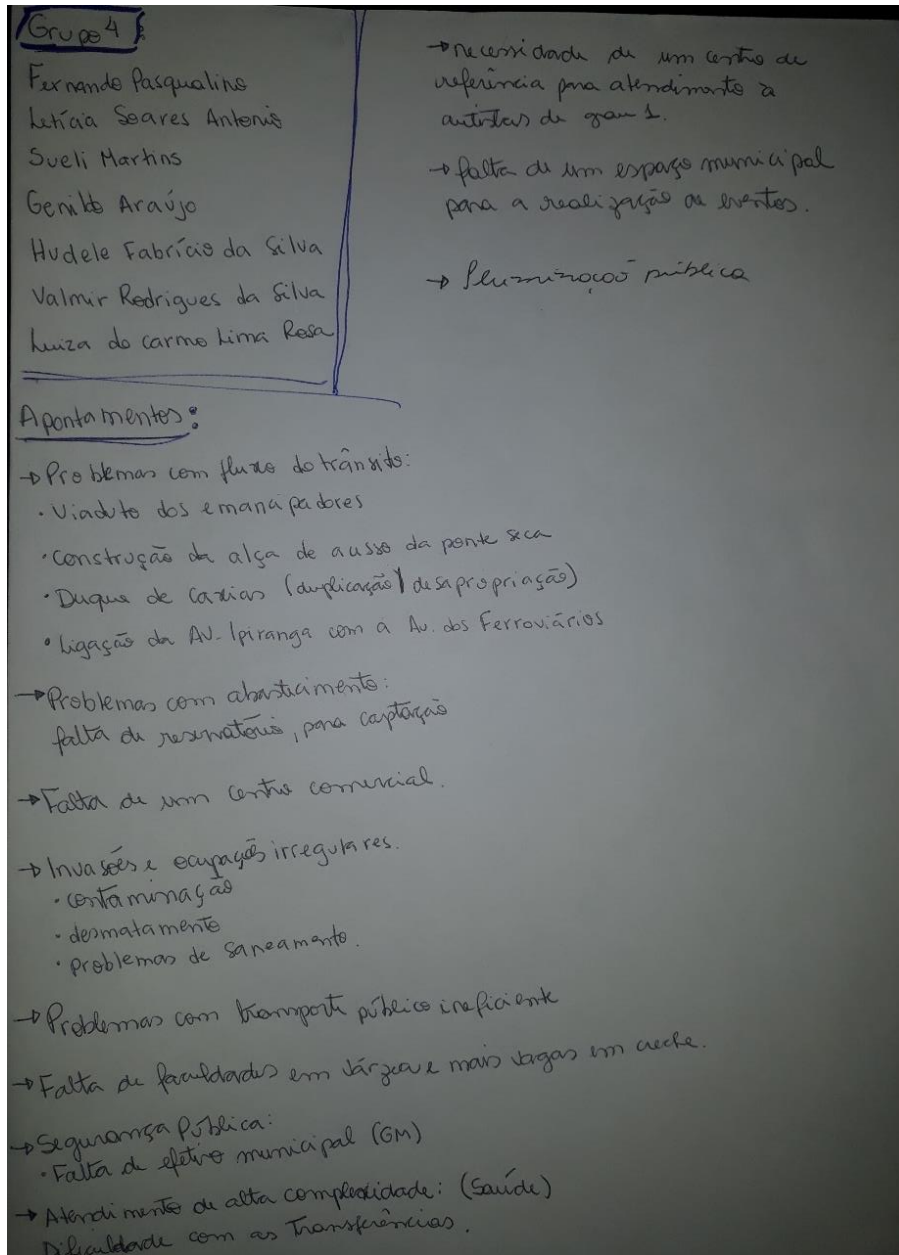 Grupo 4:
Fernando Pasqualino
Letícia Soares Antonio
Sueli Martins
Genildo Araújo
Hudele Fabrício da Silva
Valmir Rodrigues da Silva
Luiza do carmo Lima Rosa
Apontamentos:
→ Problemas com fluxo do trânsito:
· Viaduto dos emancipadores
· Construção da alça de acesso da ponte seca
· Duque de Caxias (duplicação / desapropriação)
· Ligação da AV. Ipiranga com a Av. dos Ferroviários
→ Problemas com abastecimento:
falta de reservatório, para captação
→ Falta de um centro comercial.
→ Invasões e ocupações irregulares.
· contaminação
· desmatamento
· problemas de saneamento.
→ Problemas com transporte público ineficiente
→ Falta de faculdades em várzea e mais vagas em creche.
→ Segurança Pública:
· Falta de efetivo municipal (GM)
→ Atendimento de alta complexidade: (Saúde)
Dificuldade com as Transferências.
→ necessidade de um centro de
referência para atendimento a
autistas de grau 1.
→ falta de um espaço municipal
para a realização de eventos.
→ Iluminação pública